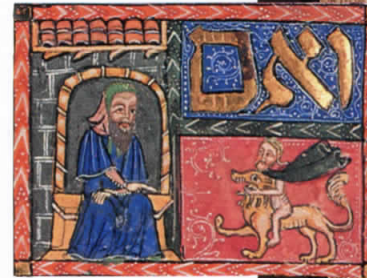 ואם